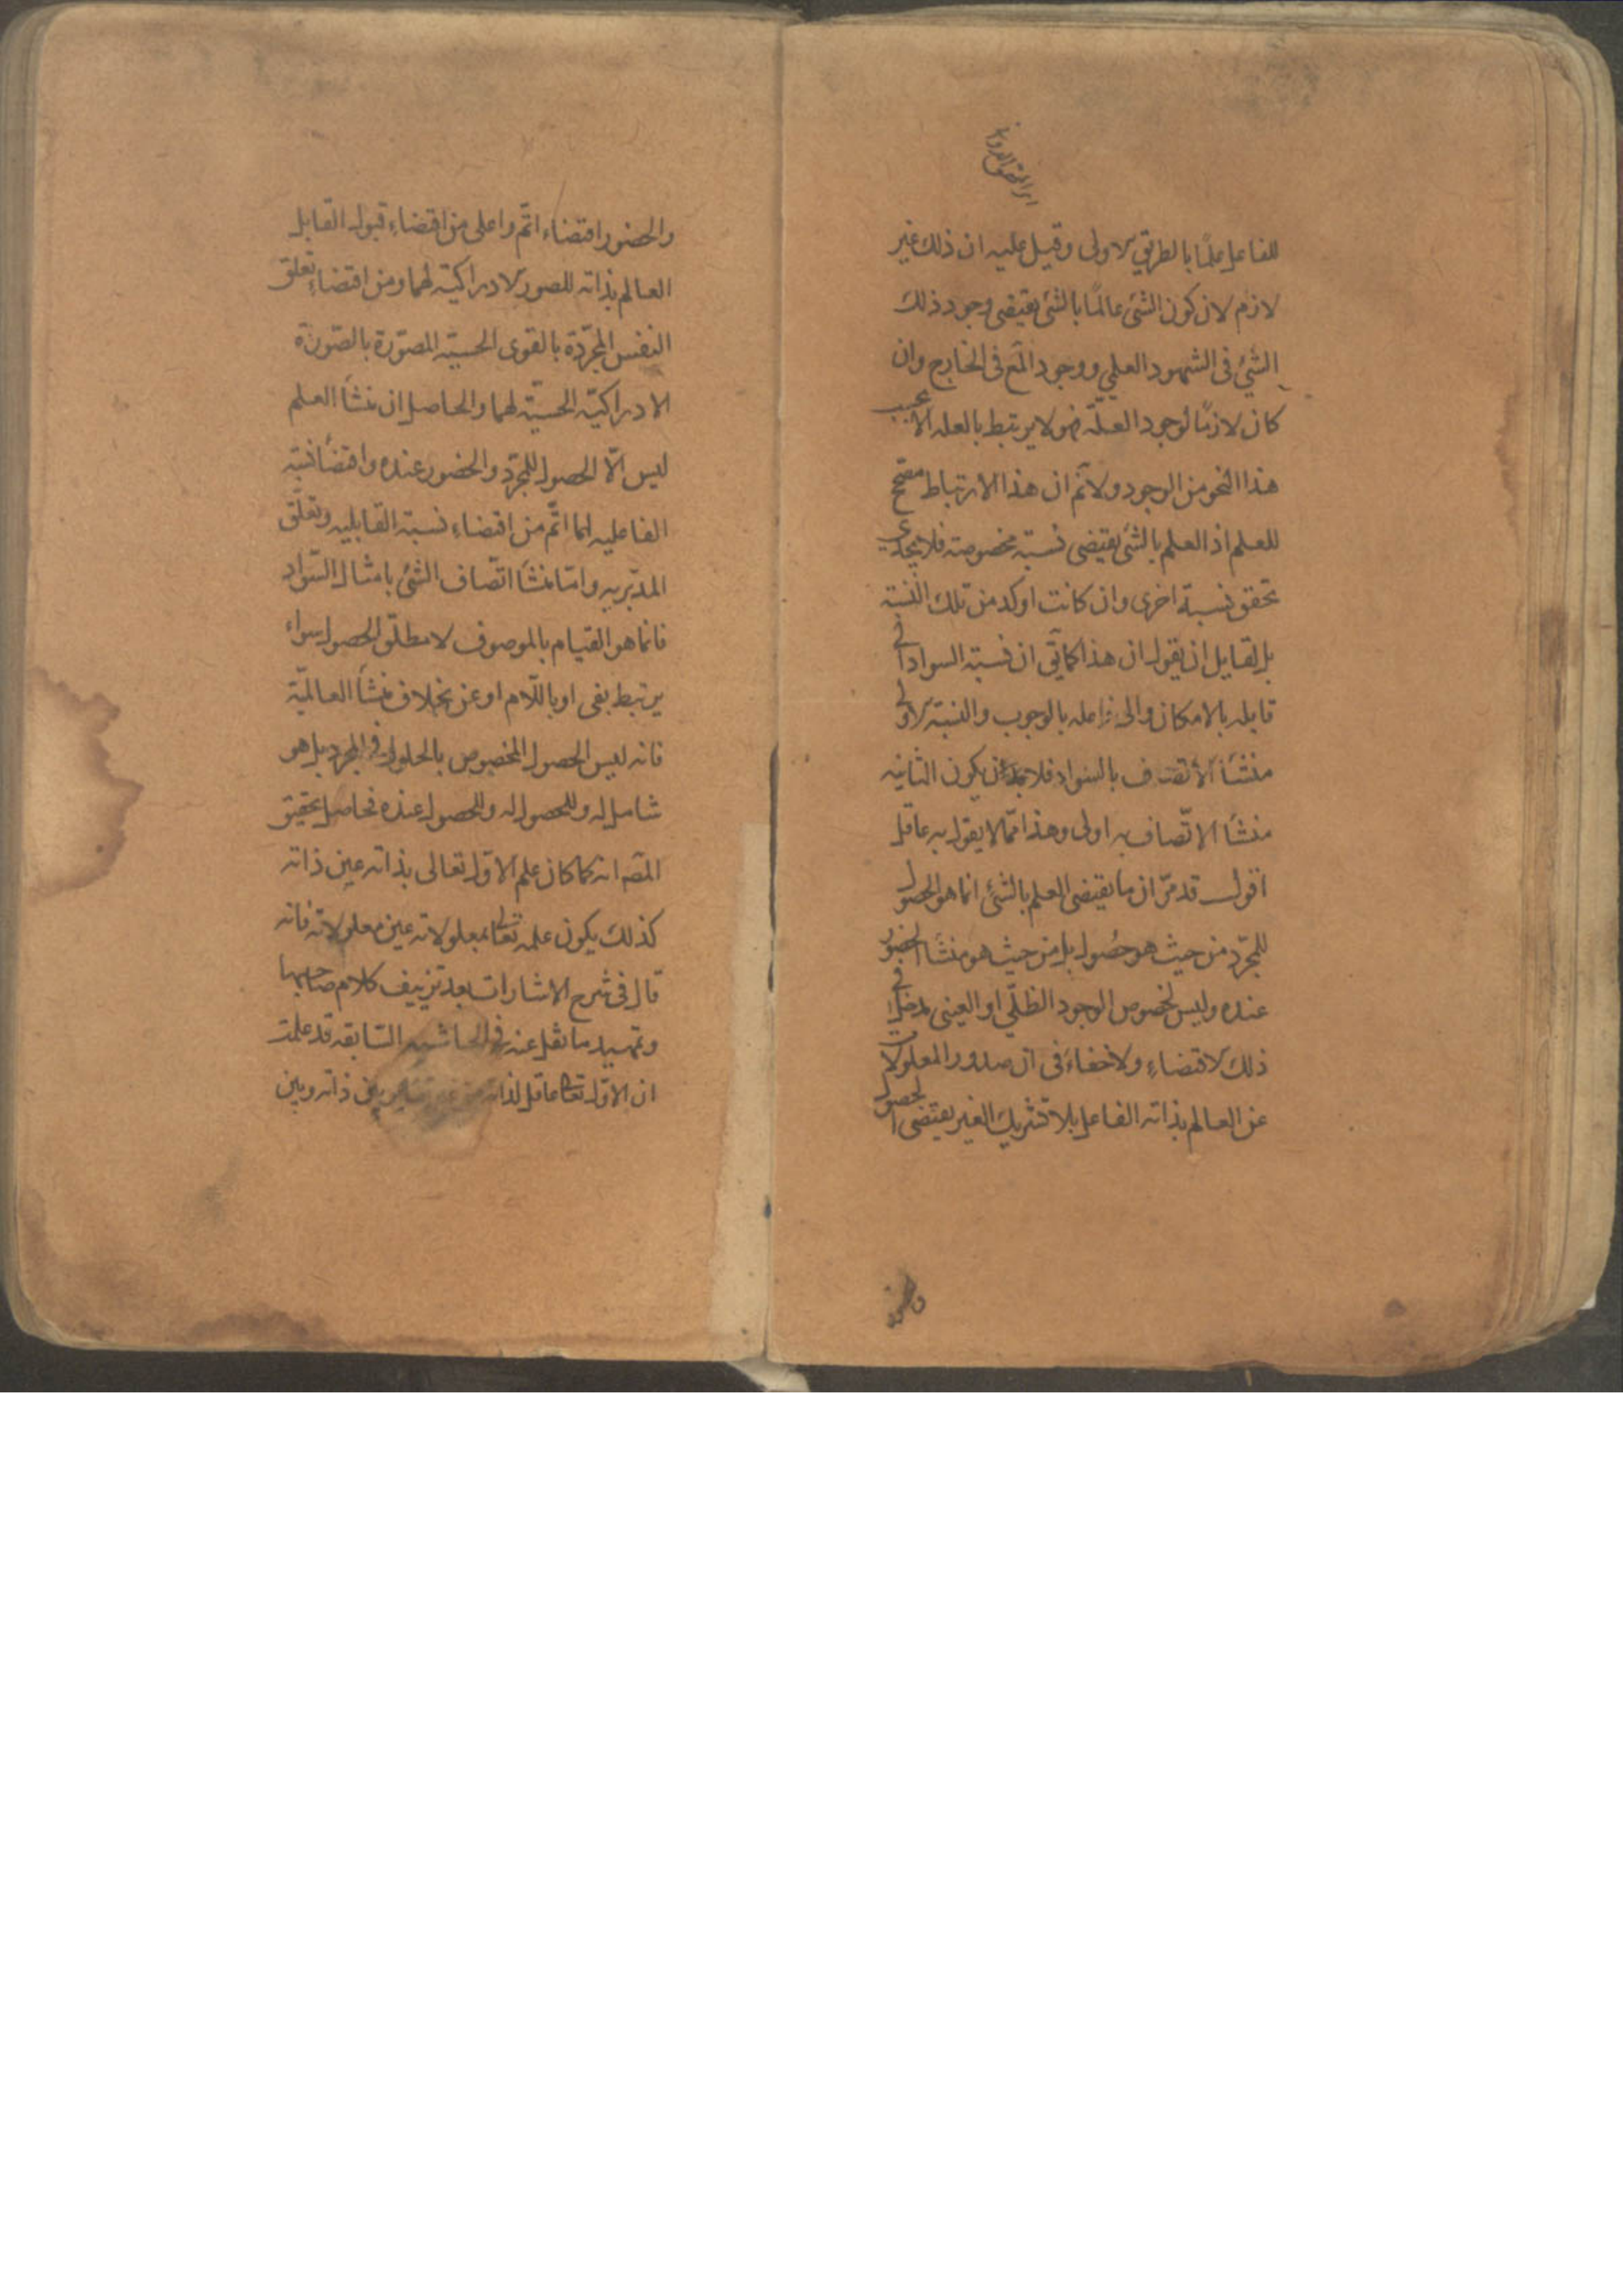 للفاعل علمًا بالطريق الاولى وقيل عليه ان ذلك غير
لازم لان كون الشئ عالمًا بالشئ يقتضى وجود ذلك
الشئ فى الشهود العلمي ووجود المع فى الخارج وان
كان لازمًا لوجود العلّة فهو لا يرتبط بالعله الا بحسب
هذا النحو من الوجود ولا نم ان هذا الارتباط مصحح
للعلم اذ العلم بالشئ يقتضى نسبته مخصوصته فلا يجدى
تحقق نسبة اخرى وان كانت اوكد من تلك النسبته
بل لقايل ان يقول ان هذا كما ان نسبته السواد الى
قابله بالامكان والى فاعله بالوجوب والنسبته الاولى
منشأ الاتصاف بالسواد فلا بد ان يكون الثانيه
منشأ الاتّصاف به اولى وهذا ممّا لا يقول به عاقل
اقول قد مرّ ان ما يقتضى العلم بالشئ انما هو الحصول
للمجرّد من حيث هو حصُول بل من حيث هو منشأ الحضور
عنده وليس لخصوص الوجود الظلّي او العينى مدخل فى
ذلك الاقتضاءِ ولا خفاءَ فى ان صدور المعلولات
عن العالم بذاته الفاعل بلا تشريك الغير يقتضى الحصول
والحضور
والحضور اقتضاء اتمّ واعلى من اقتضاءِ قبول القابل
العالم بذاته للصور الادراكيّة لهما ومن اقتضاءِ تعلق
النفس المجرّدة بالقوى الحسيّه المصوّرة بالصّورة
الادراكيّه الحسيّه لهما والحاصل ان منشأ العلم
ليس الّا الحصول للمجرّد والحضور عنده واقتضأ نسبته
الفاعليه لهما اتّم من اقتضاءِ نسبته القابليه وتعلّق
المدبّريه وامّا منشأ اتصاف الشئ بامثال السّواد
فانما هو القيام بالموصوف لا مطلق الحصول سواء
يرتبط بفى او باللّام او عن بخلاف منشأ العالميّة
فانه ليس الحصول المخصوص بالحلول فى المجرد بل هو
شامل له وللحصول له وللحصول عنده فحاصل تحقيق
المصَ انه كما كان علم الاوّل تعالى بذاته عين ذاته
كذلك يكون علمه تعالى بمعلولاته عين معلولاته فانه
قال فى شرح الاشارات بعد تزييف كلام صاحبها
وتمهيد ما نقل عنه فى الحاشيه السّابقه قد علمت
ان الاوّل تعالى عاقل لذاته من غير تغاير بين ذاته وبين